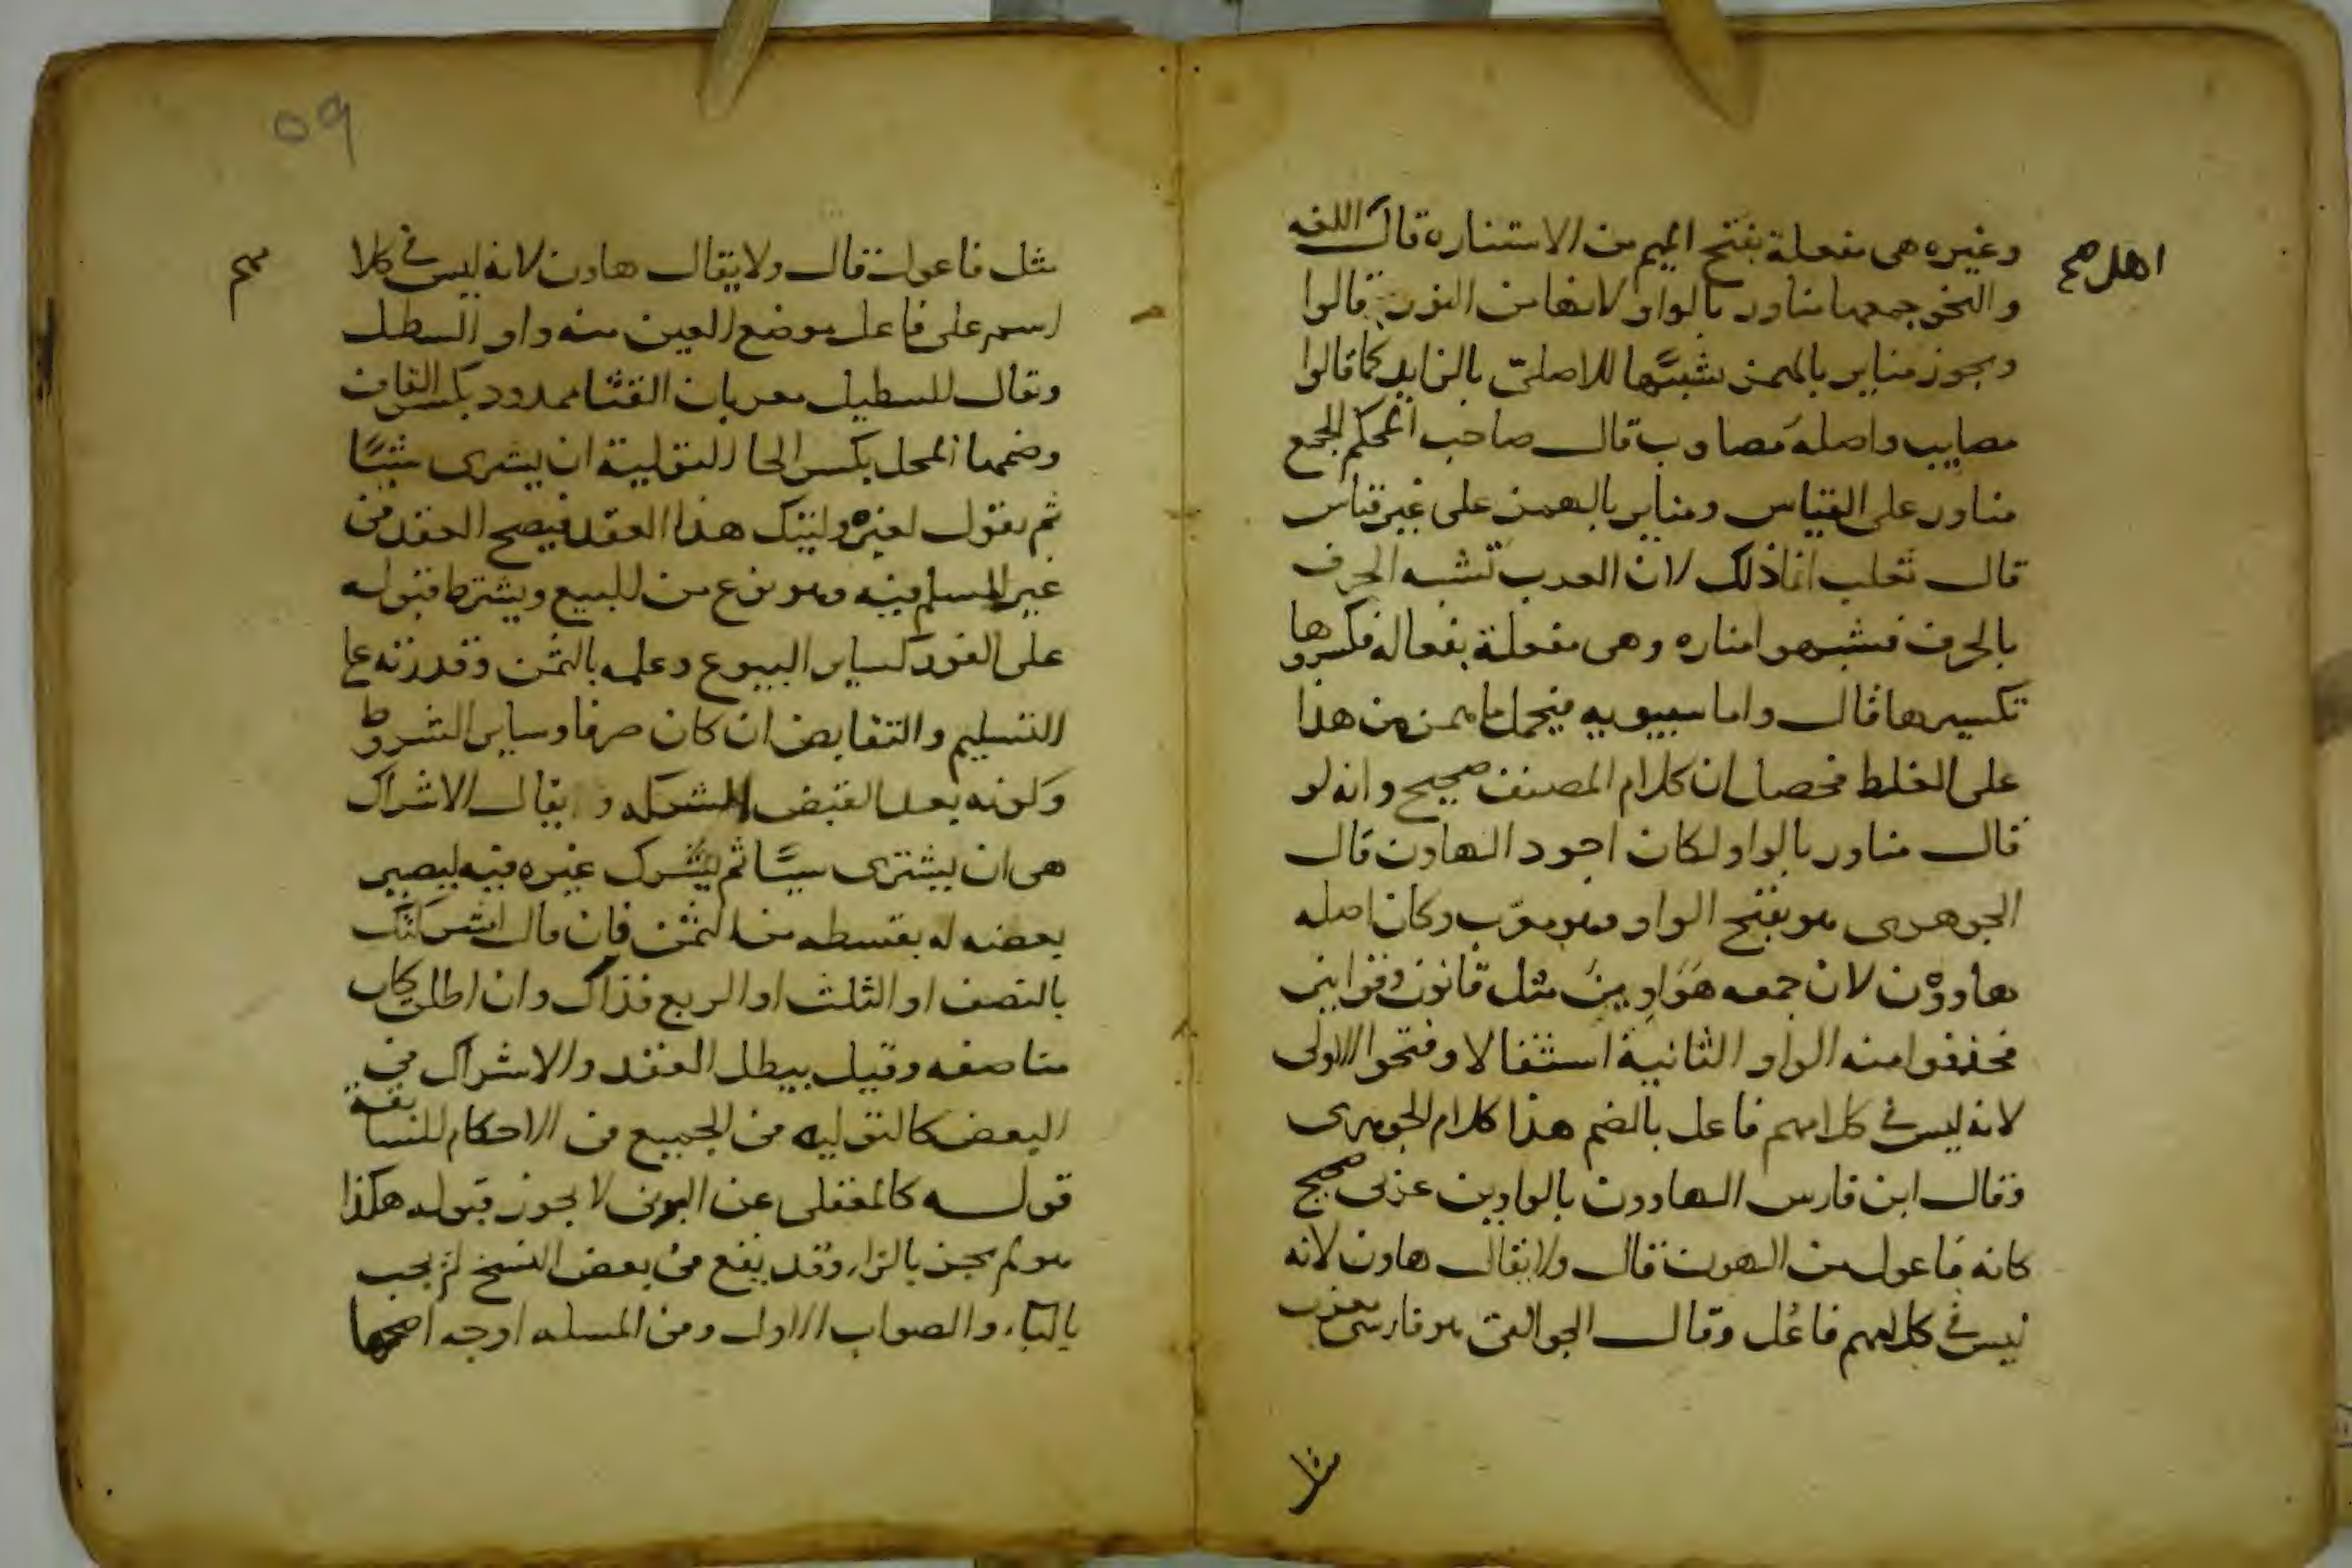 وغيره هى مفعلة بفتح الميم من الاستناره قال اللغه
اهل صح
والنحو جمعها مناور بالواو لانها من النور قالوا
ويجوز مناير بالهمز تشبيهًا للاصلىّ بالزايد كما قالوا
مصايب واصله مصاوب قال صاحب المحكم الجمع
مناور على القياس ومناير بالهمز على غير قياس
قال ثعلب انما ذلك لان العرب تشبه الحرف
بالحرف فشبهوا مناره وهى مفعلة بفعاله فكسروها
تكسيرها قال واما سيبويه فيحمل ما همز من هذا
على الغلط فحصل ان كلام المصنف صحيح وانه لو
قال مناور بالواو لكان اجود الهاون قال
الجوهرى هو بفتح الواو وهو معرّب وكان اصله
هاوون لان جمعه هَوَاوِينَ مثل قانون وقوانين
فحذفوا منه الواو الثانية استثقالا وفتحوا الاولى
لانه ليس فى كلامهم فاعل بالضم هذا كلام الجوهرى
وقال ابن فارس الهاوون بالواوين عربى صحيح
كانه فاعول من الهون قال ولا يقال هاون لانه
ليس فى كلامهم فاعُل وقال الجواليقى هو فارسى معرب
مثل
٥٩
مثل فاعول قال ولا يقال هاون لانه ليس فى كلا
مهم
اسم على فاعل موضع العين منه واو السطل
ويقال للسطيل معربان القثا ممدود بكسر القاف
وضمها المحل بكسر الحا التولية ان يشترى شيئًا
ثم يقول لغيره وليتك هذا العقد فيصح العقد فى
غير المسلم فيه وهو نوع من البيع ويشترط قبوله
على الفور كساير البيوع وعلمه بالثمن وقدرته على
التسليم والتقابض ان كان صرفا وساير الشروط
وكونه بعد القبض الشركه ويقال الاشراك
هى ان يشترى شيئًا ثم يشرك غيره فيه ليصير
بعضه له بقسطه من الثمن فان قال اشركتك
بالنصف او الثلث او الربع فذاك وان اطلق كان
مناصفه وقيل يبطل العقد والاشراك فى
البعض كالتوليه فى الجميع فى الاحكام السابقة
قوله كالمقفلى عن البونى لا يجوز قبوله هكذا
هو لم يجز بالزاء وقد يقع فى بعض النسخ لم يجب
بالباء والصواب الاول وفى المسله اوجه اصحها